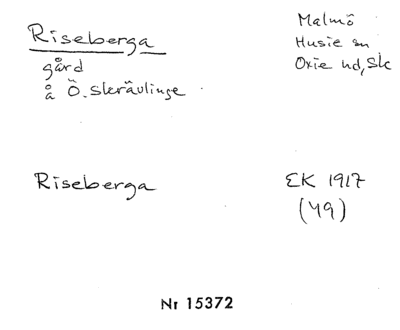 Riseberga
gård
å Ö. Skrävlinge
Malmö
Husie sn
Oxie hd, Sk
Riseberga
EK 1917
(49)
Nr 15372